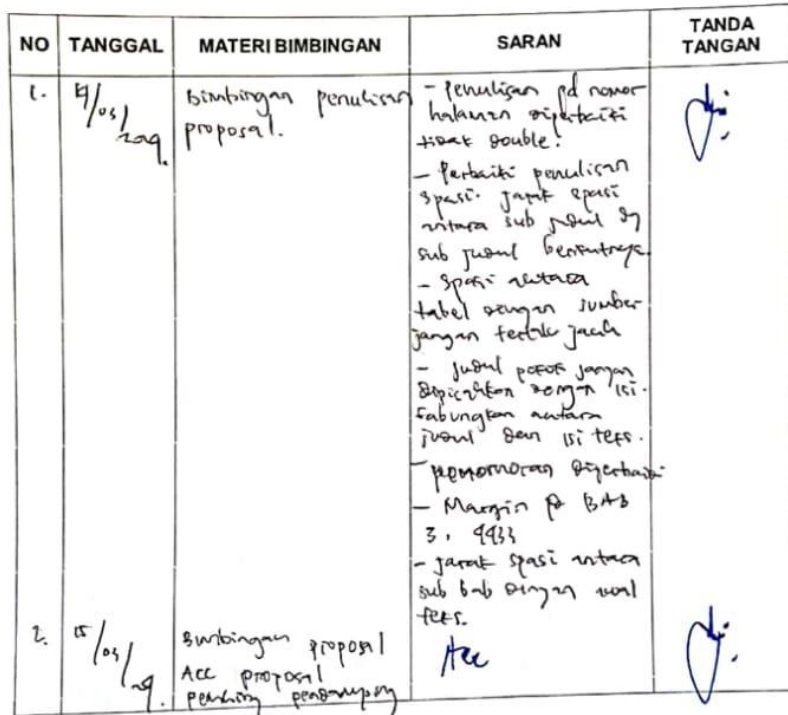 NO TANGGAL MATERI BIMBINGAN SARAN TANDA TANGAN
1.
Bimbingan penulisan
proposal.
- Penulisan pd nomor
halaman diperbaiki
tidak double.
- Perbaiki penulisan
spasi. jarak spasi
antara sub judul dg
sub judul berikutnya.
- Spasi antara
tabel dengan sumber
jangan terlalu jauh
- Judul pokok jangan
dipisahkan dengan isi.
Gabungkan antara
judul dan isi teks.
- penomoran diperbaiki
- Margin pd BAB
3, 4433
- jarak spasi antara
sub bab dengan awal
teks.
2.
Bimbingan proposal
Acc proposal
pendamping
Acc